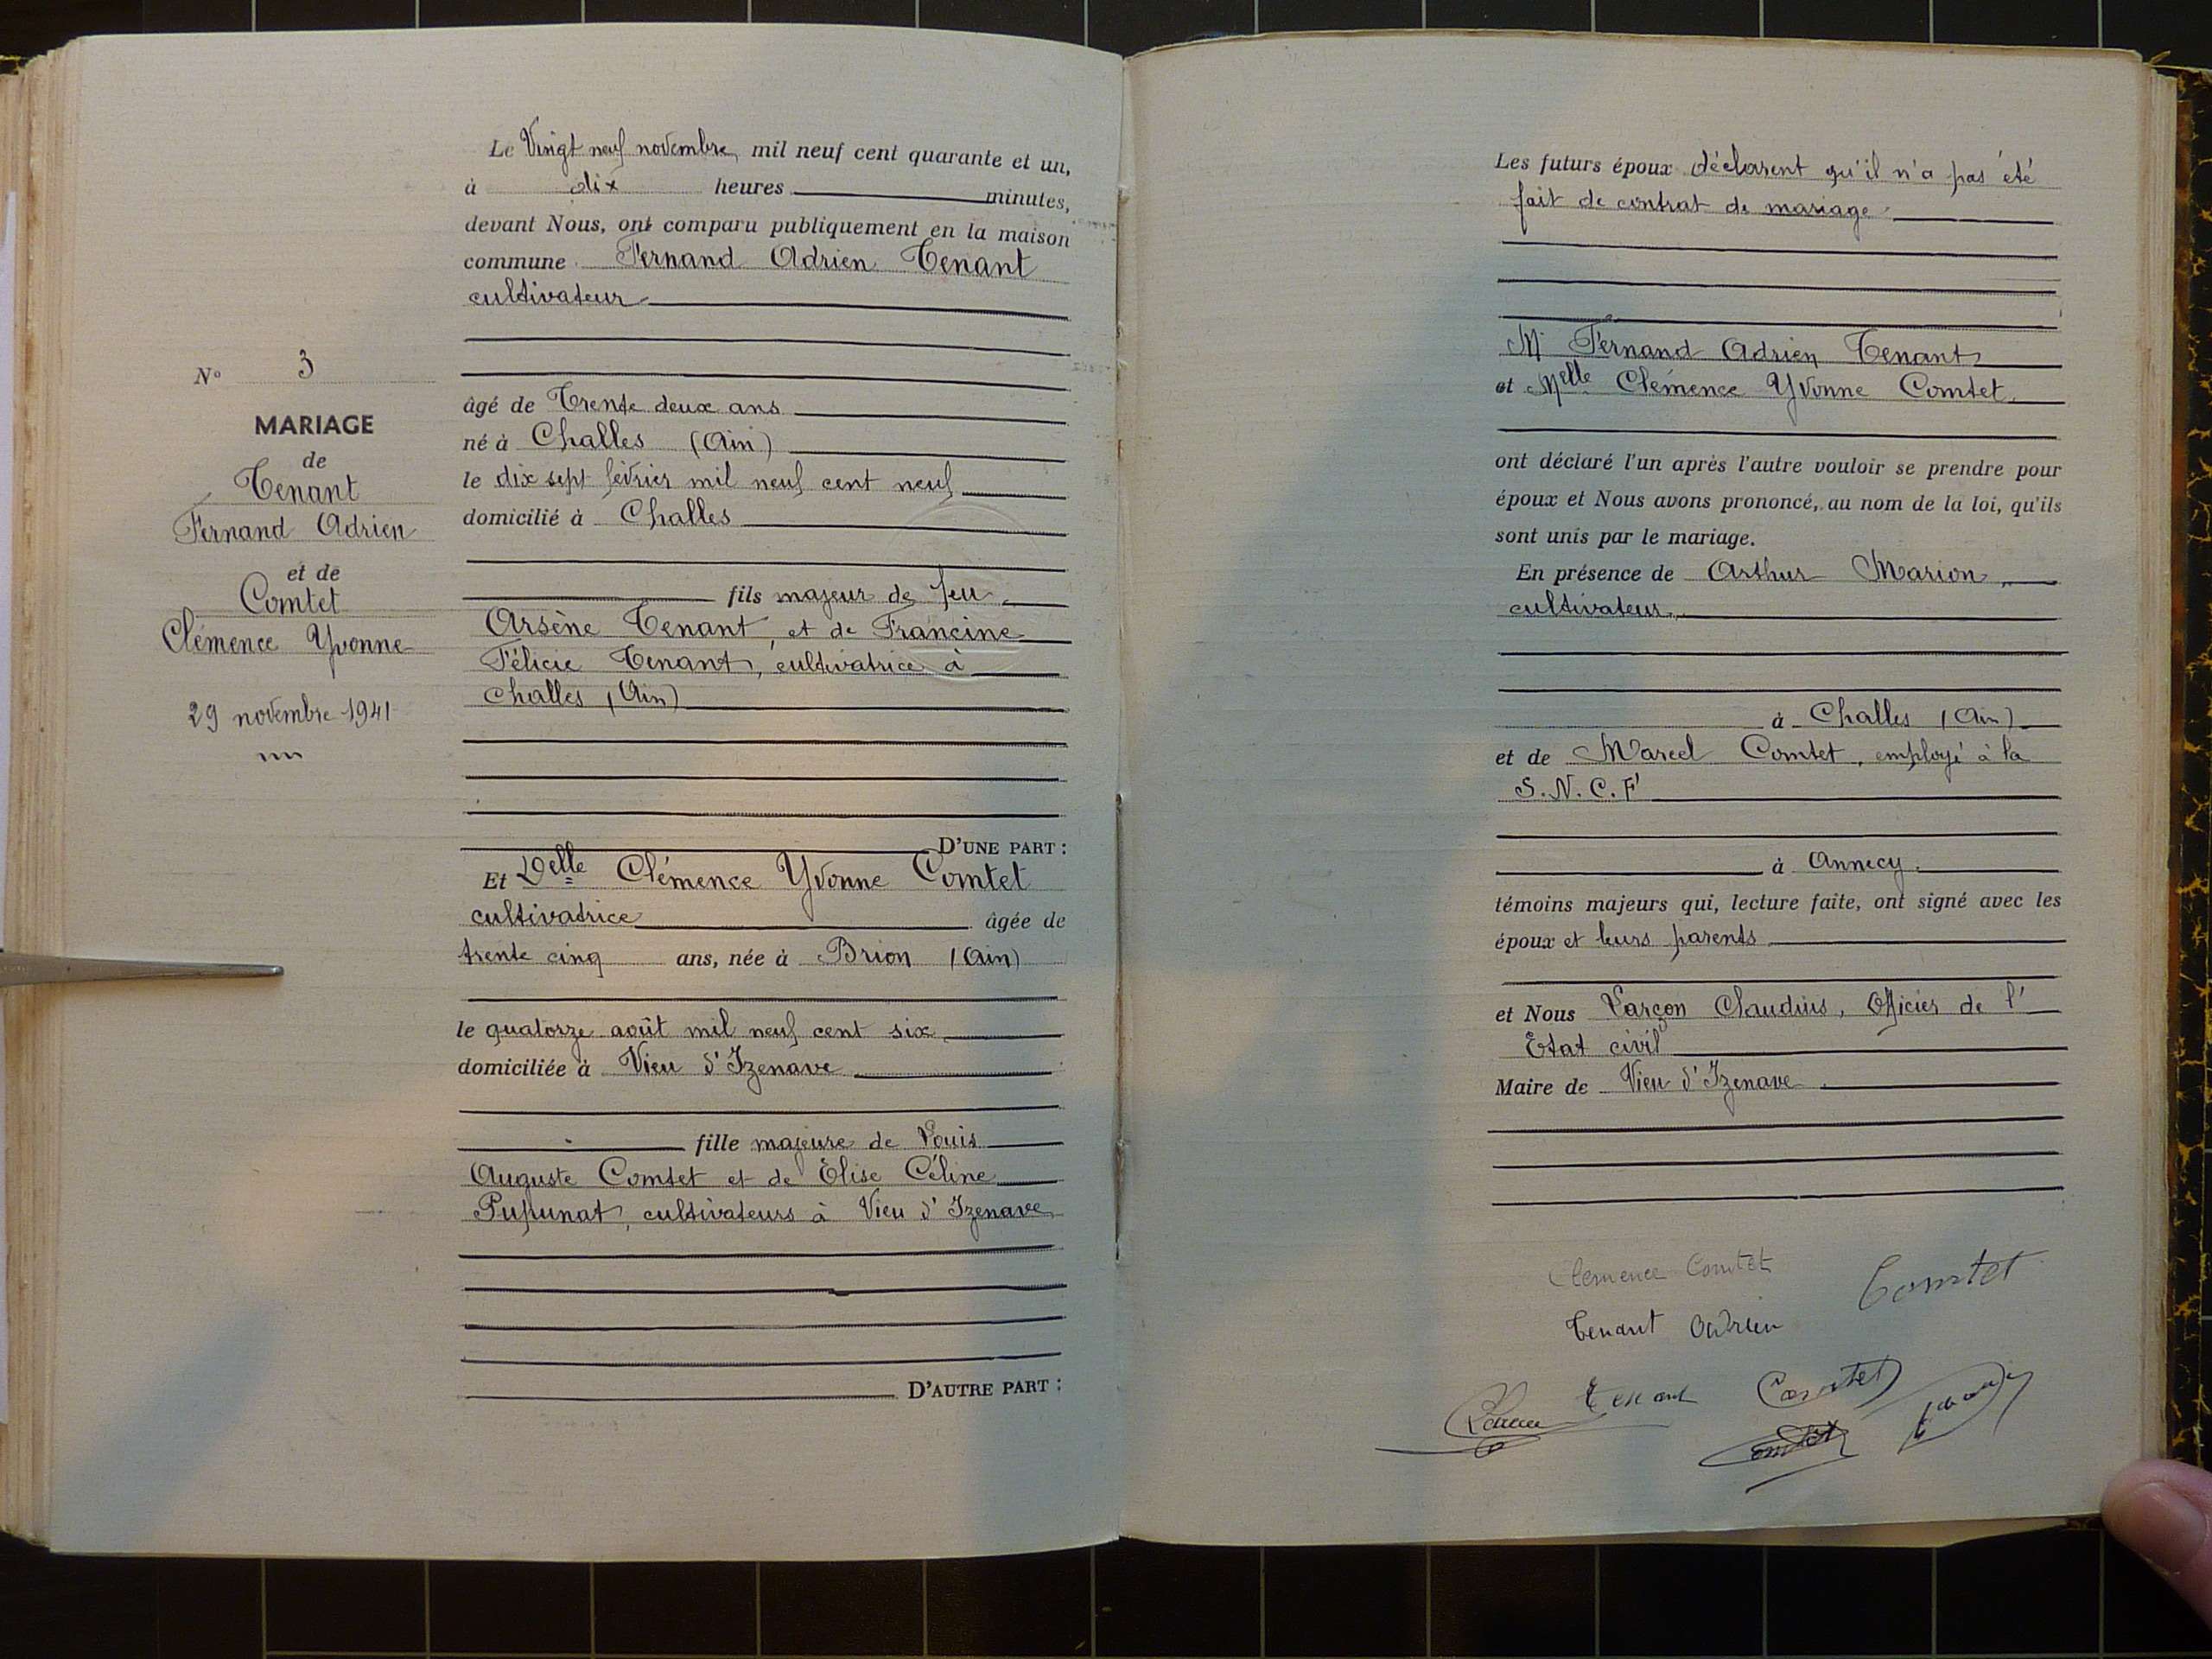 Le Vingt neuf novembre, mil neuf cent quarante et un,
à dix heures minutes,
devant Nous, ont comparu publiquement en la maison
commune Fernand Adrien Tenant
cultivateur
N° 3
MARIAGE
de
Tenant
Fernand Adrien
et de
Comtet
Clémence Yvonne
29 novembre 1941
âgé de Trente deux ans
né à Challes (Ain)
le dix sept février mil neuf cent neuf
domicilié à Challes
fils majeur de feu
Arsène Tenant, et de Francine
Félicie Tenant, cultivatrice à
Challes (Ain)
D'UNE PART :
Et Delle Clémence Yvonne Comtet
cultivatrice âgée de
trente cinq ans, née à Brion (Ain)
le quatorze août mil neuf cent six
domiciliée à Vieu d'Izenave
fille majeure de Louis
Auguste Comtet et de Elise Céline
Pupunat, cultivateurs à Vieu d'Izenave
D'AUTRE PART :
Les futurs époux déclarent qu'il n'a pas été
fait de contrat de mariage
Mr Fernand Adrien Tenant
et Melle Clémence Yvonne Comtet
ont déclaré l'un après l'autre vouloir se prendre pour
époux et Nous avons prononcé, au nom de la loi, qu'ils
sont unis par le mariage.
En présence de Arthur Marion,
cultivateur
à Challes (Ain)
et de Marcel Comtet, employé à la
S.N.C.F
à Annecy.
témoins majeurs qui, lecture faite, ont signé avec les
époux et leurs parents
et Nous Larçon Claudius, Officier de l'
Etat civil
Maire de Vieu d'Izenave
Clemence Comtet
Comtet
Tenant Adrien
Tenant Comtet
Comtet